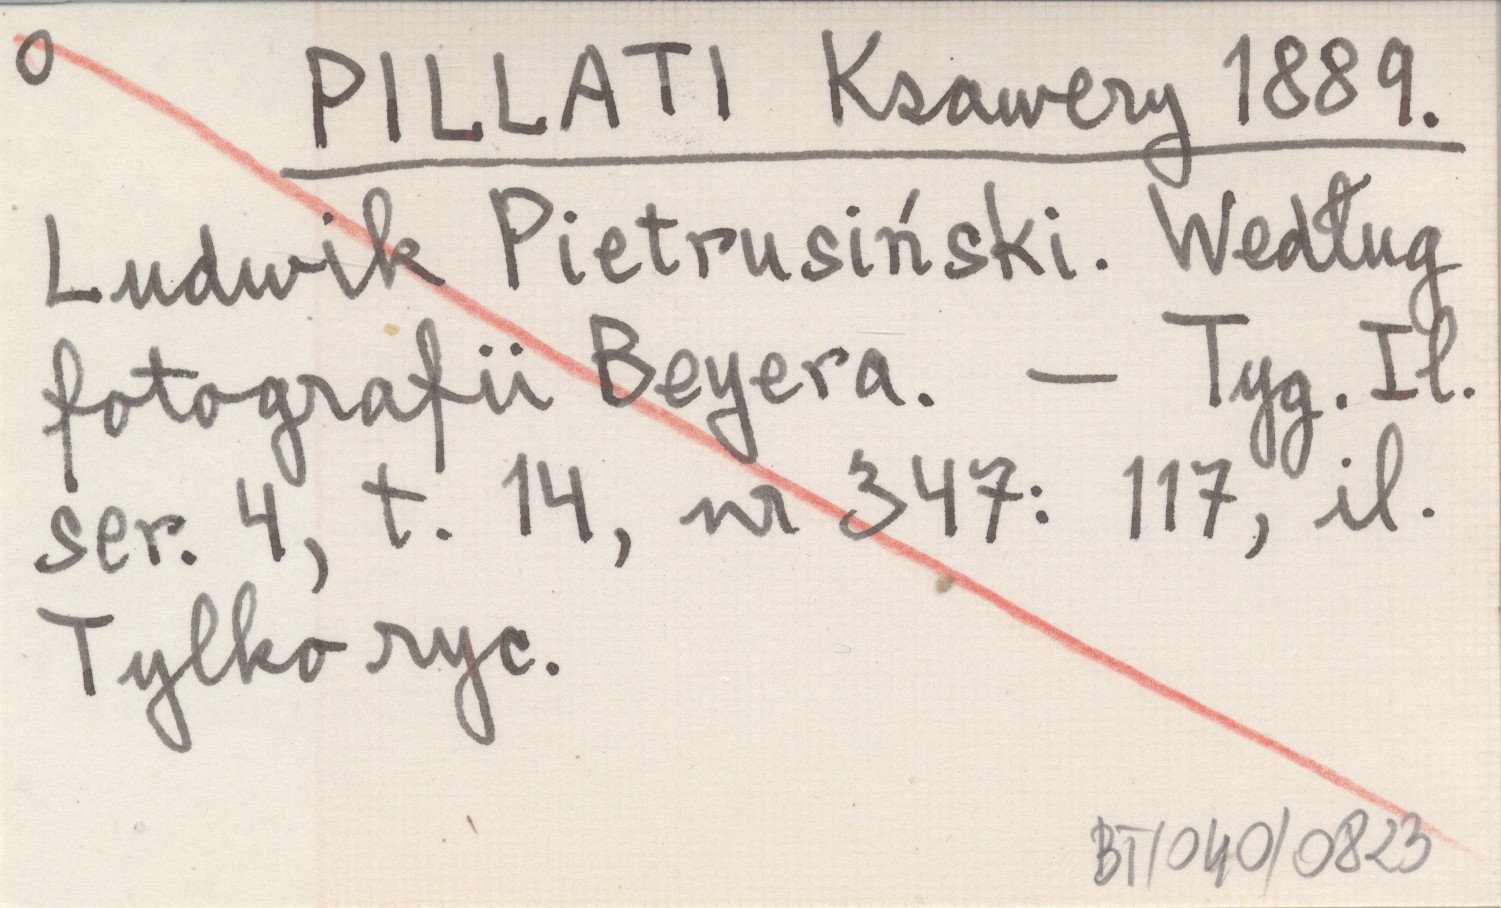 0
PILLATI Ksawery 1889.
Ludwik Pietrusiński. Według
fotografii Beyera. — Tyg. Il.
ser. 4, t. 14, nr 347: 117, il.
Tylko ryc.
BT/040/0823